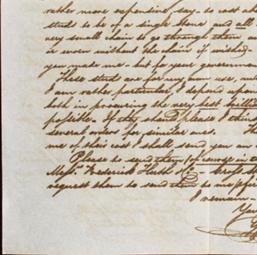 rather more expensive, say to cost ab
studs to be of a single stone and all
very small chain to go through them
or even without the chain if wished
you made me. but for your government
These studs are for my own use,
I am rather particular, I depend upon
both in procuring the very best
possible. If they should please I think
several orders for similar ones. Th
me of their cost I shall send you an
Please to send them, of course in
Messrs. Frederick Huth &Co
request them to send them to me per
I remain
You